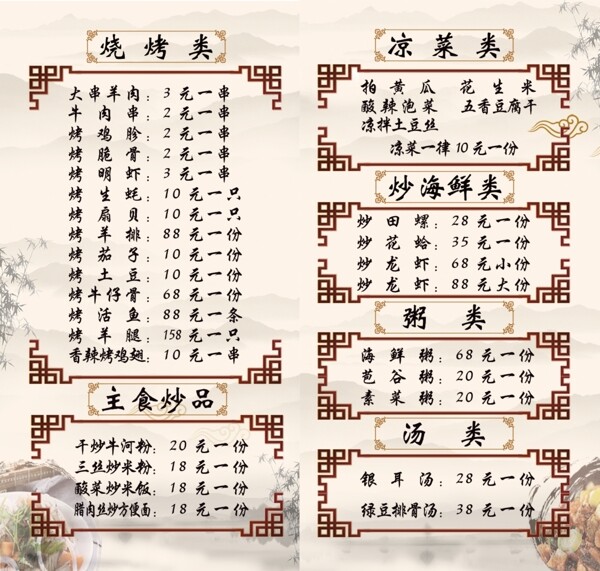 烧烤类
大串羊肉：3元一串
牛肉串：2元一串
烤鸡胗：2元一串
烤脆骨：2元一串
烤明虾：3元一串
烤生蚝：10元一只
烤扇贝：10元一只
烤羊排：88元一份
烤茄子：10元一份
烤土豆：10元一份
烤牛仔骨：68元一份
烤活鱼：88元一条
烤羊腿：158元一只
香辣烤鸡翅：10元一串
主食炒品
干炒牛河粉：20元一份
三丝炒米粉：18元一份
酸菜炒米饭：18元一份
腊肉丝炒方便面：18元一份
凉菜类
拍黄瓜 花生米
酸辣泡菜 五香豆腐干
凉拌土豆丝
凉菜一律10元一份
炒海鲜类
炒田螺：28元一份
炒花蛤：35元一份
炒龙虾：68元小份
炒龙虾：88元大份
粥类
海鲜粥：68元一份
苞谷粥：20元一份
素菜粥：20元一份
汤类
银耳汤：28元一份
绿豆排骨汤：38元一份